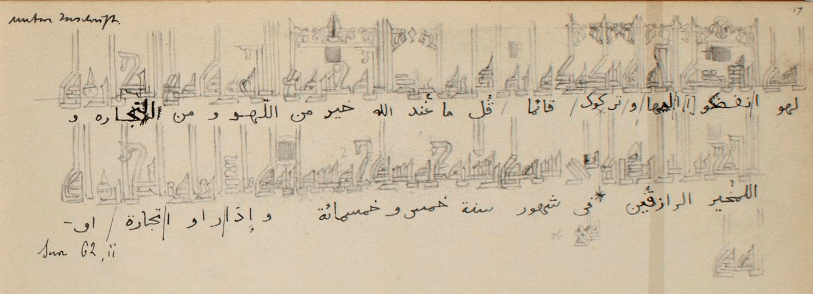 untere Inschrift.
17
لهو انفضوا اليها و تركوك / قائما / قُل ما عند الله خير من اللّهو و من التجاره و
الله خير الرازقين * فى شهور سنة خمس و خمسمائة و إذا راو ا تجارة / او-
Sur 62, 11